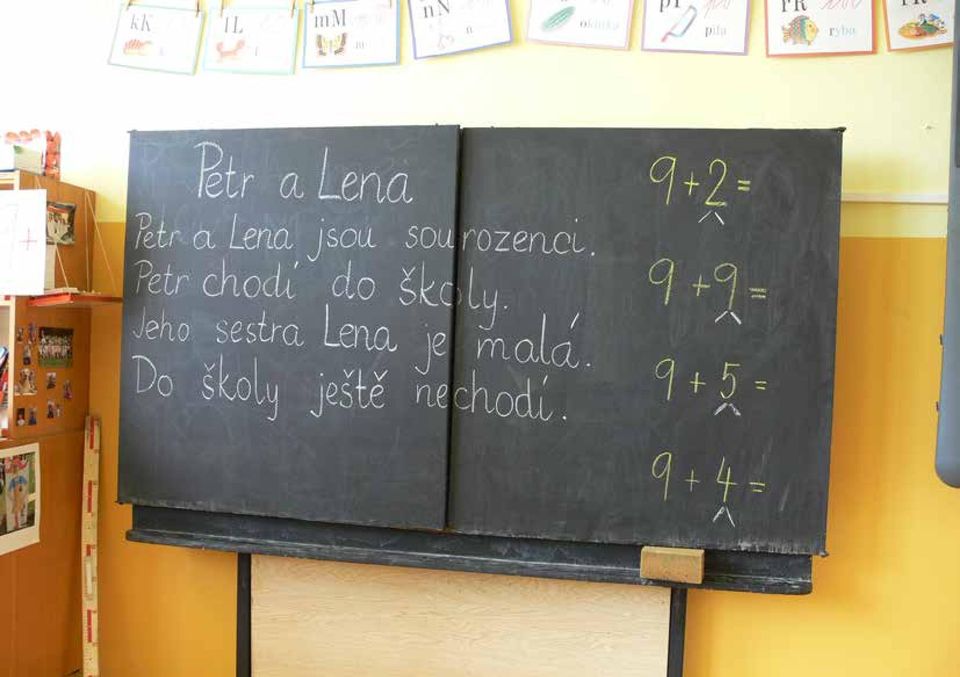 kK
lL
mM
nN
n
okurka
pP
pila
rR
ryba
Petr a Lena
Petr a Lena jsou sourozenci.
Petr chodí do školy.
Jeho sestra Lena je malá.
Do školy ještě nechodí.
9+2=
9+9=
9+5=
9+4=